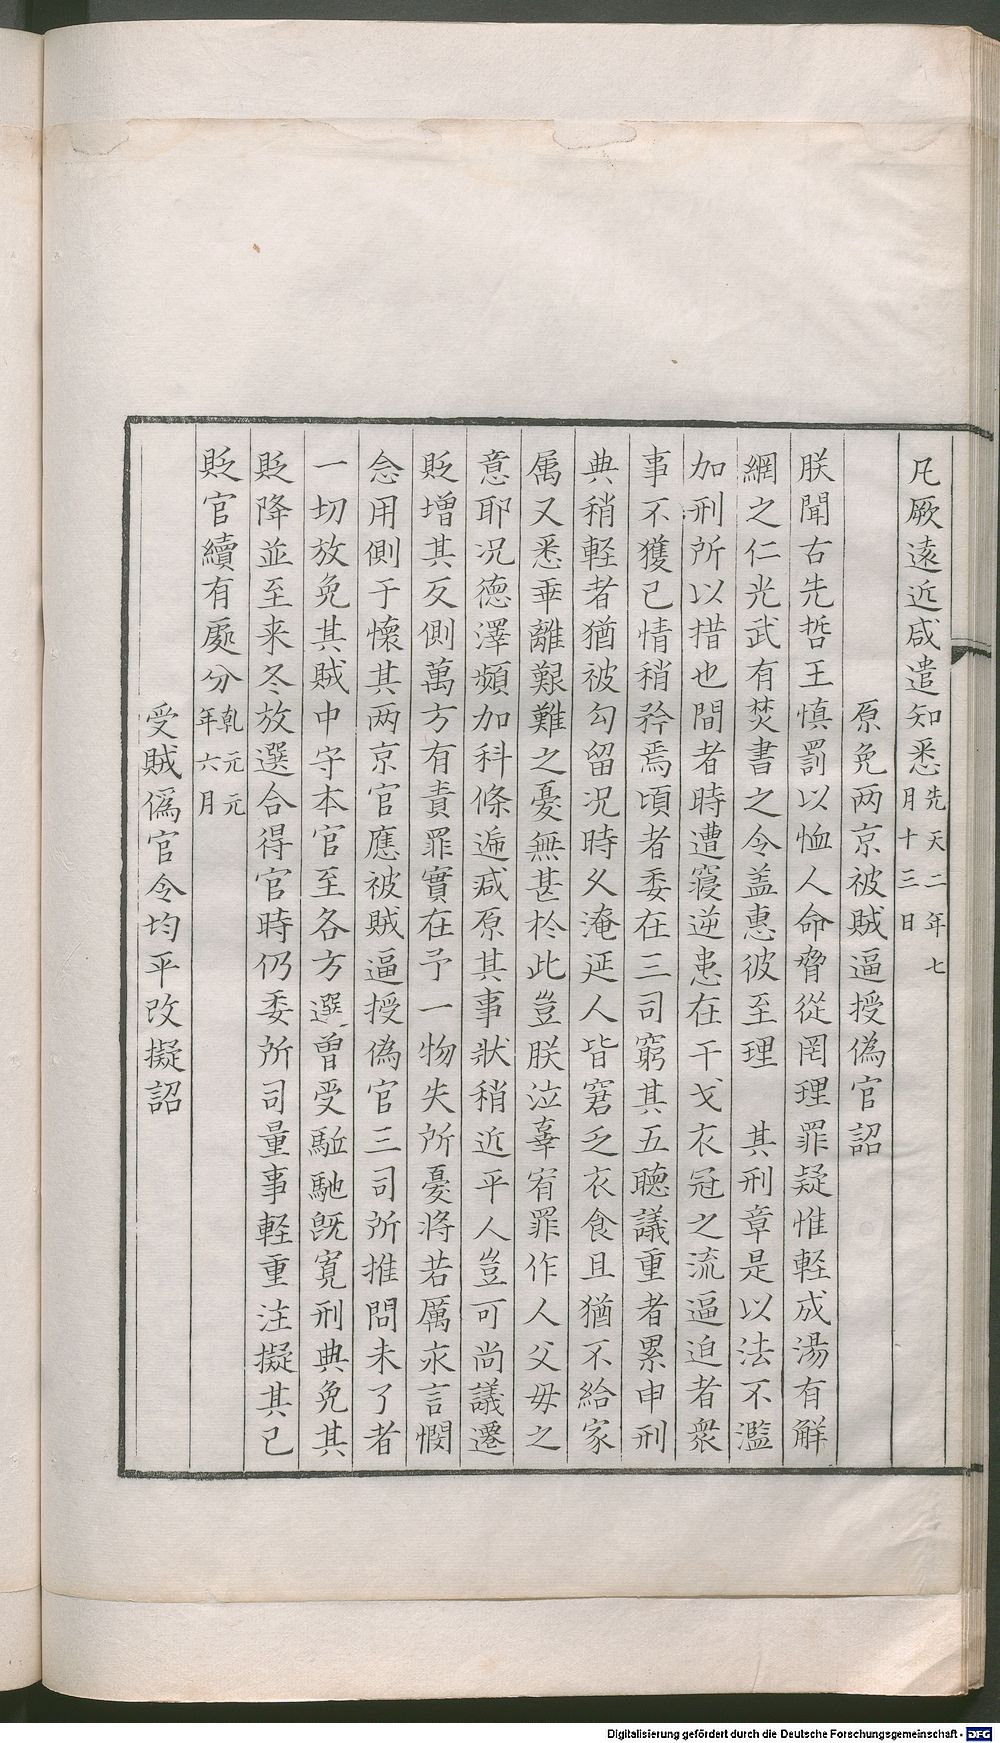 凡厥遠近咸遣知悉先天二年七月十三日
原免两京被賊逼授偽官詔
朕聞古先哲王慎罰以恤人命脅從罔理罪疑惟輕成湯有解
網之仁光武有焚書之令盖惠彼至理　其刑章是以法不濫
加刑所以措也間者時遭寇逆患在干戈衣冠之流逼迫者衆
事不獲已情稍矜焉頃者委在三司窮其五聴議重者累申刑
典稍軽者猶被勾留况時久淹延人皆窘乏衣食且猶不給家
属又悉乖離艱難之憂無甚扵此豈朕泣辜宥罪作人父母之
意耶况德澤頻加科條遞减原其事狀稍近平人豈可尚議遷
貶增其反側萬方有責罪實在予一物失所憂將若厲永言憫
念用側于懷其两京官應被賊逼授偽官三司所推問未了者
一切放免其賊中守本官至各方選曽受駈馳旣寛刑典免其
貶降並至来冬放選合得官時仍委所司量事軽重注擬其已
貶官續有處分乹元元年六月
受賊僞官令均平改擬詔
Digitalisierung gefördert durch die Deutsche Forschungsgemeinschaft - DFG